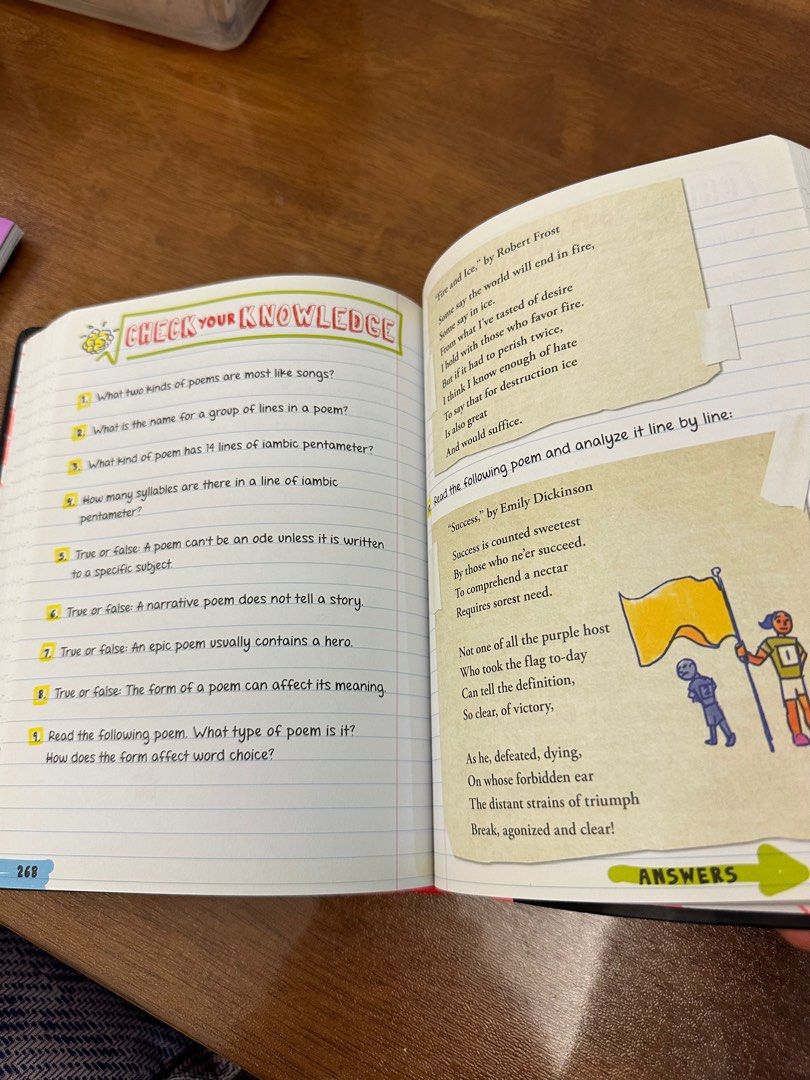 CHECK YOUR KNOWLEDGE
1. What two kinds of poems are most like songs?
2. What is the name for a group of lines in a poem?
3. What kind of poem has 14 lines of iambic pentameter?
4. How many syllables are there in a line of iambic
pentameter?
5. True or false: A poem can't be an ode unless it is written
to a specific subject.
6. True or false: A narrative poem does not tell a story.
7. True or false: An epic poem usually contains a hero.
8. True or false: The form of a poem can affect its meaning.
9. Read the following poem. What type of poem is it?
How does the form affect word choice?
268
"Fire and Ice," by Robert Frost
Some say the world will end in fire,
Some say in ice.
From what I've tasted of desire
I hold with those who favor fire.
But if it had to perish twice,
I think I know enough of hate
To say that for destruction ice
Is also great
And would suffice.
Read the following poem and analyze it line by line:
"Success," by Emily Dickinson
Success is counted sweetest
By those who ne'er succeed.
To comprehend a nectar
Requires sorest need.
Not one of all the purple host
Who took the flag to-day
Can tell the definition,
So clear, of victory,
As he, defeated, dying,
On whose forbidden ear
The distant strains of triumph
Break, agonized and clear!
1
2
ANSWERS